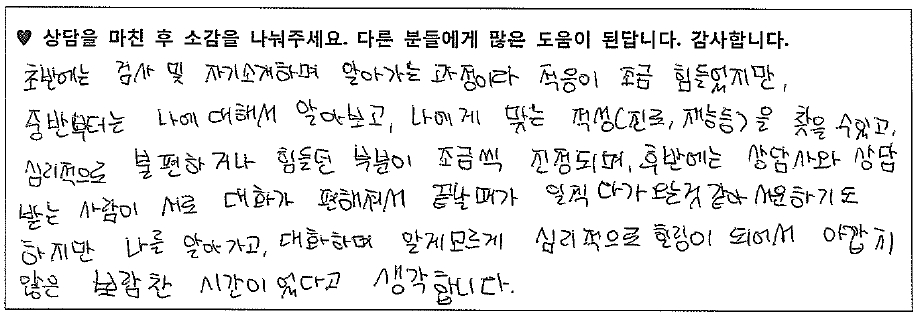 ♥ 상담을 마친 후 소감을 나눠주세요. 다른 분들에게 많은 도움이 된답니다. 감사합니다.
초반에는 검사 및 자기소개하며 알아가는 과정이다 적응이 조금 힘들었지만,
중반부터는 나에 대해서 알아보고, 나에게 맞는 적성(진로, 재능등)을 찾을 수있고,
심리적으로 불편하거나 힘들던 부분이 조금씩 진정되며, 후반에는 상담사와 상담
받는 사람이 서로 대화가 편해져서 끝날때가 일찍 다가오는것 같아 서운하기도
하지만 나를 알아가고, 대화하며 알게모르게 심리적으로 힐링이 되어서 아깝지
않은 보람찬 시간이었다고 생각합니다.